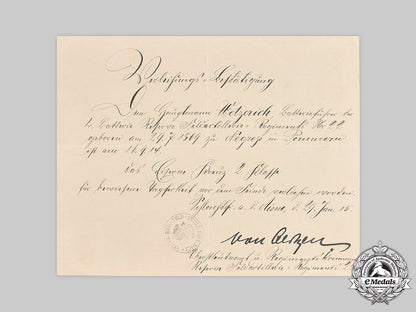 Verleihungs-Bestätigung
Dem Hauptmann Wölzerich, Batterieführer der
4. Batterie Reserve Feldartillerie-Regiments Nr 22
geboren am 29.7.1869 zu in Pommern
ist am 11.9.14.
das Eiserne Kreuz 2. Klasse
für bewiesene Tapferkeit vor dem Feinde verliehen worden.
a. d. Aisne, d. 29. Jan. 15.
von Oertzen
Oberstleutnant u. Regiments
Reserve Feldartillerie-Regiments
eMedals